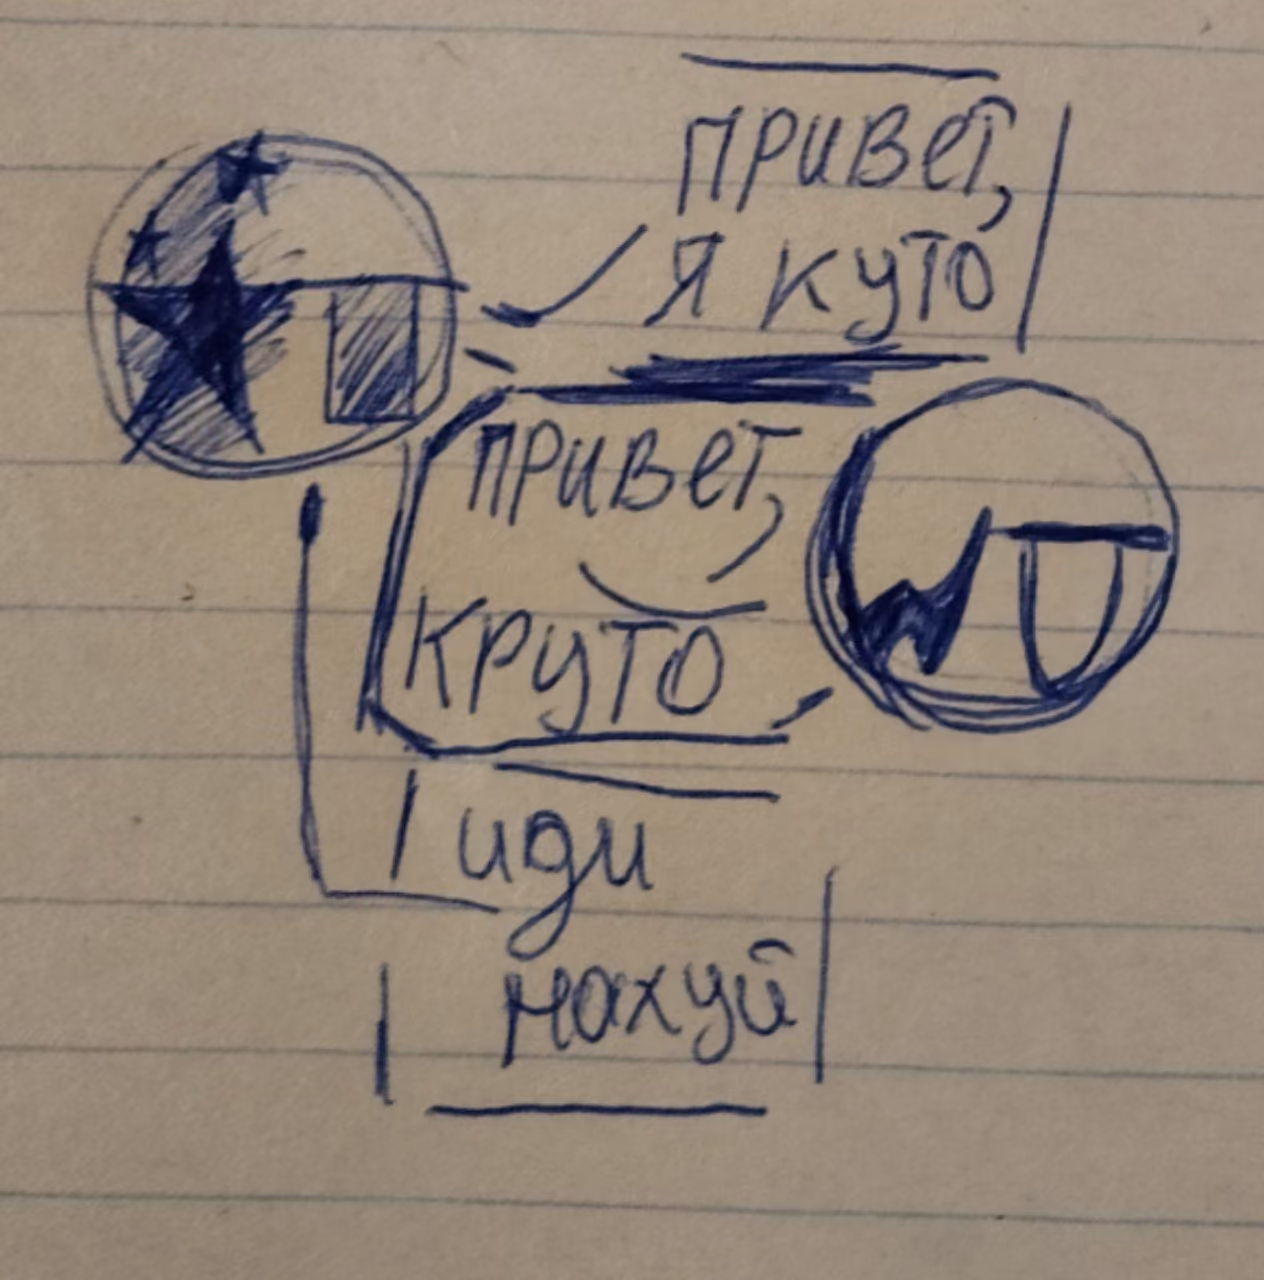 привет,
я куто
привет,
круто
иди
нахуй